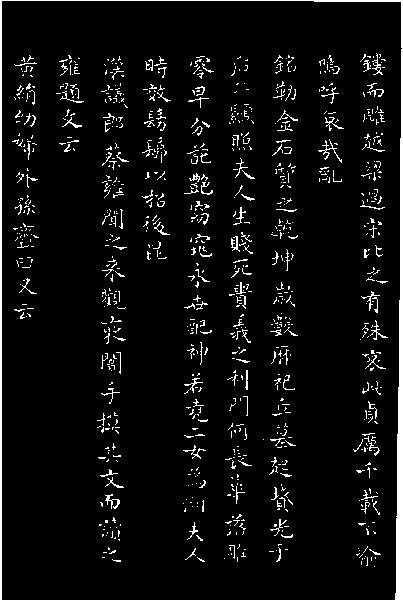 鏤而雕越梁過宋比之有殊哀此貞厲千載不渝
嗚呼哀哉亂
銘勒金石質之乾坤歲數曆祀丘墓起墳光于
后土顯照夫人生賤死貴義之利門何長華落雕
零早分葩艷窈窕永世配神若堯二女為湘夫人
時效髣髴以招後昆
漢議郎蔡雍聞之來觀夜闇手摸其文而讀之
雍題文云
黃絹幼婦外孫齏臼又云